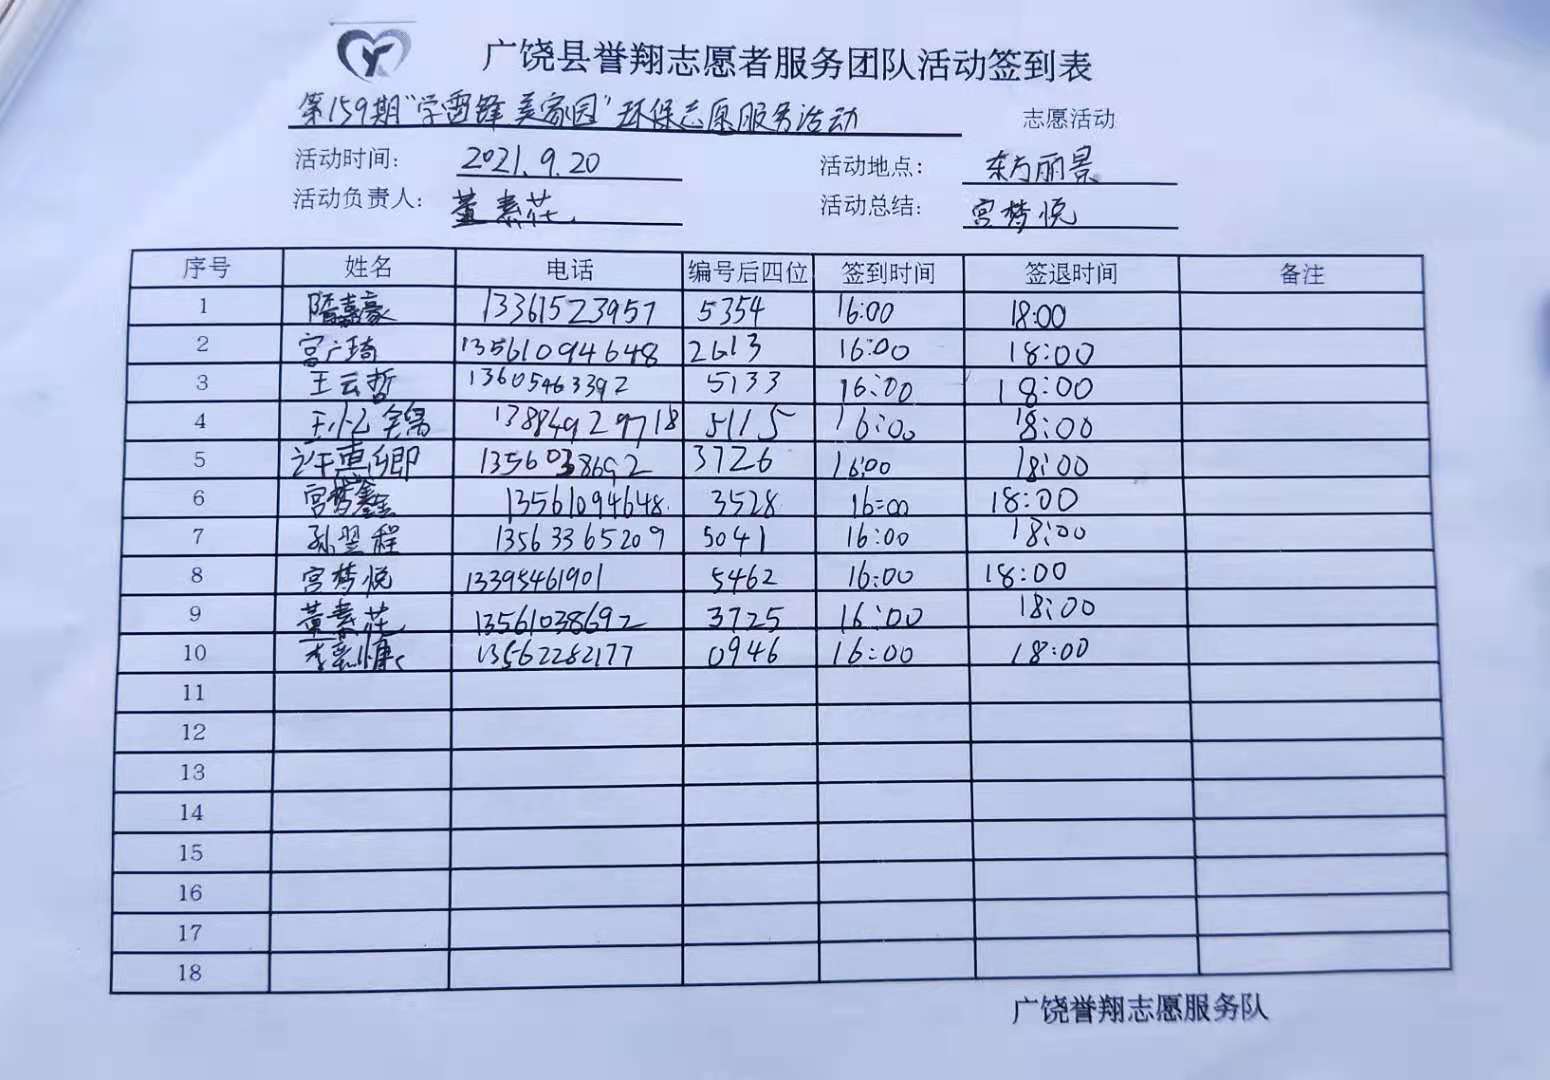 广饶县誉翔志愿者服务团队活动签到表
第159期"学雷锋 美家园"环保志愿服务活动 志愿活动
活动时间: 2021.9.20 活动地点: 东方丽景
活动负责人: 董素花 活动总结: 宫梦悦
序号 姓名 电话 编号后四位 签到时间 签退时间 备注
1 隋嘉豪 13361523957 5354 16:00 18:00
2 宫广琦 13561094648 2613 16:00 18:00
3 王云哲 13605463392 5133 16:00 18:00
4 13884929718 5115 16:00 18:00
5 许惠卿 3726 16:00 18:00
6 宫梦鑫 13561094648 3528 16:00 18:00
7 孙翌程 13563365209 5041 16:00 18:00
8 宫梦悦 13395461901 5462 16:00 18:00
9 董素花 13561038692 3725 16:00 18:00
10 13562282177 0946 16:00 18:00
11
12
13
14
15
16
17
18
广饶誉翔志愿服务队